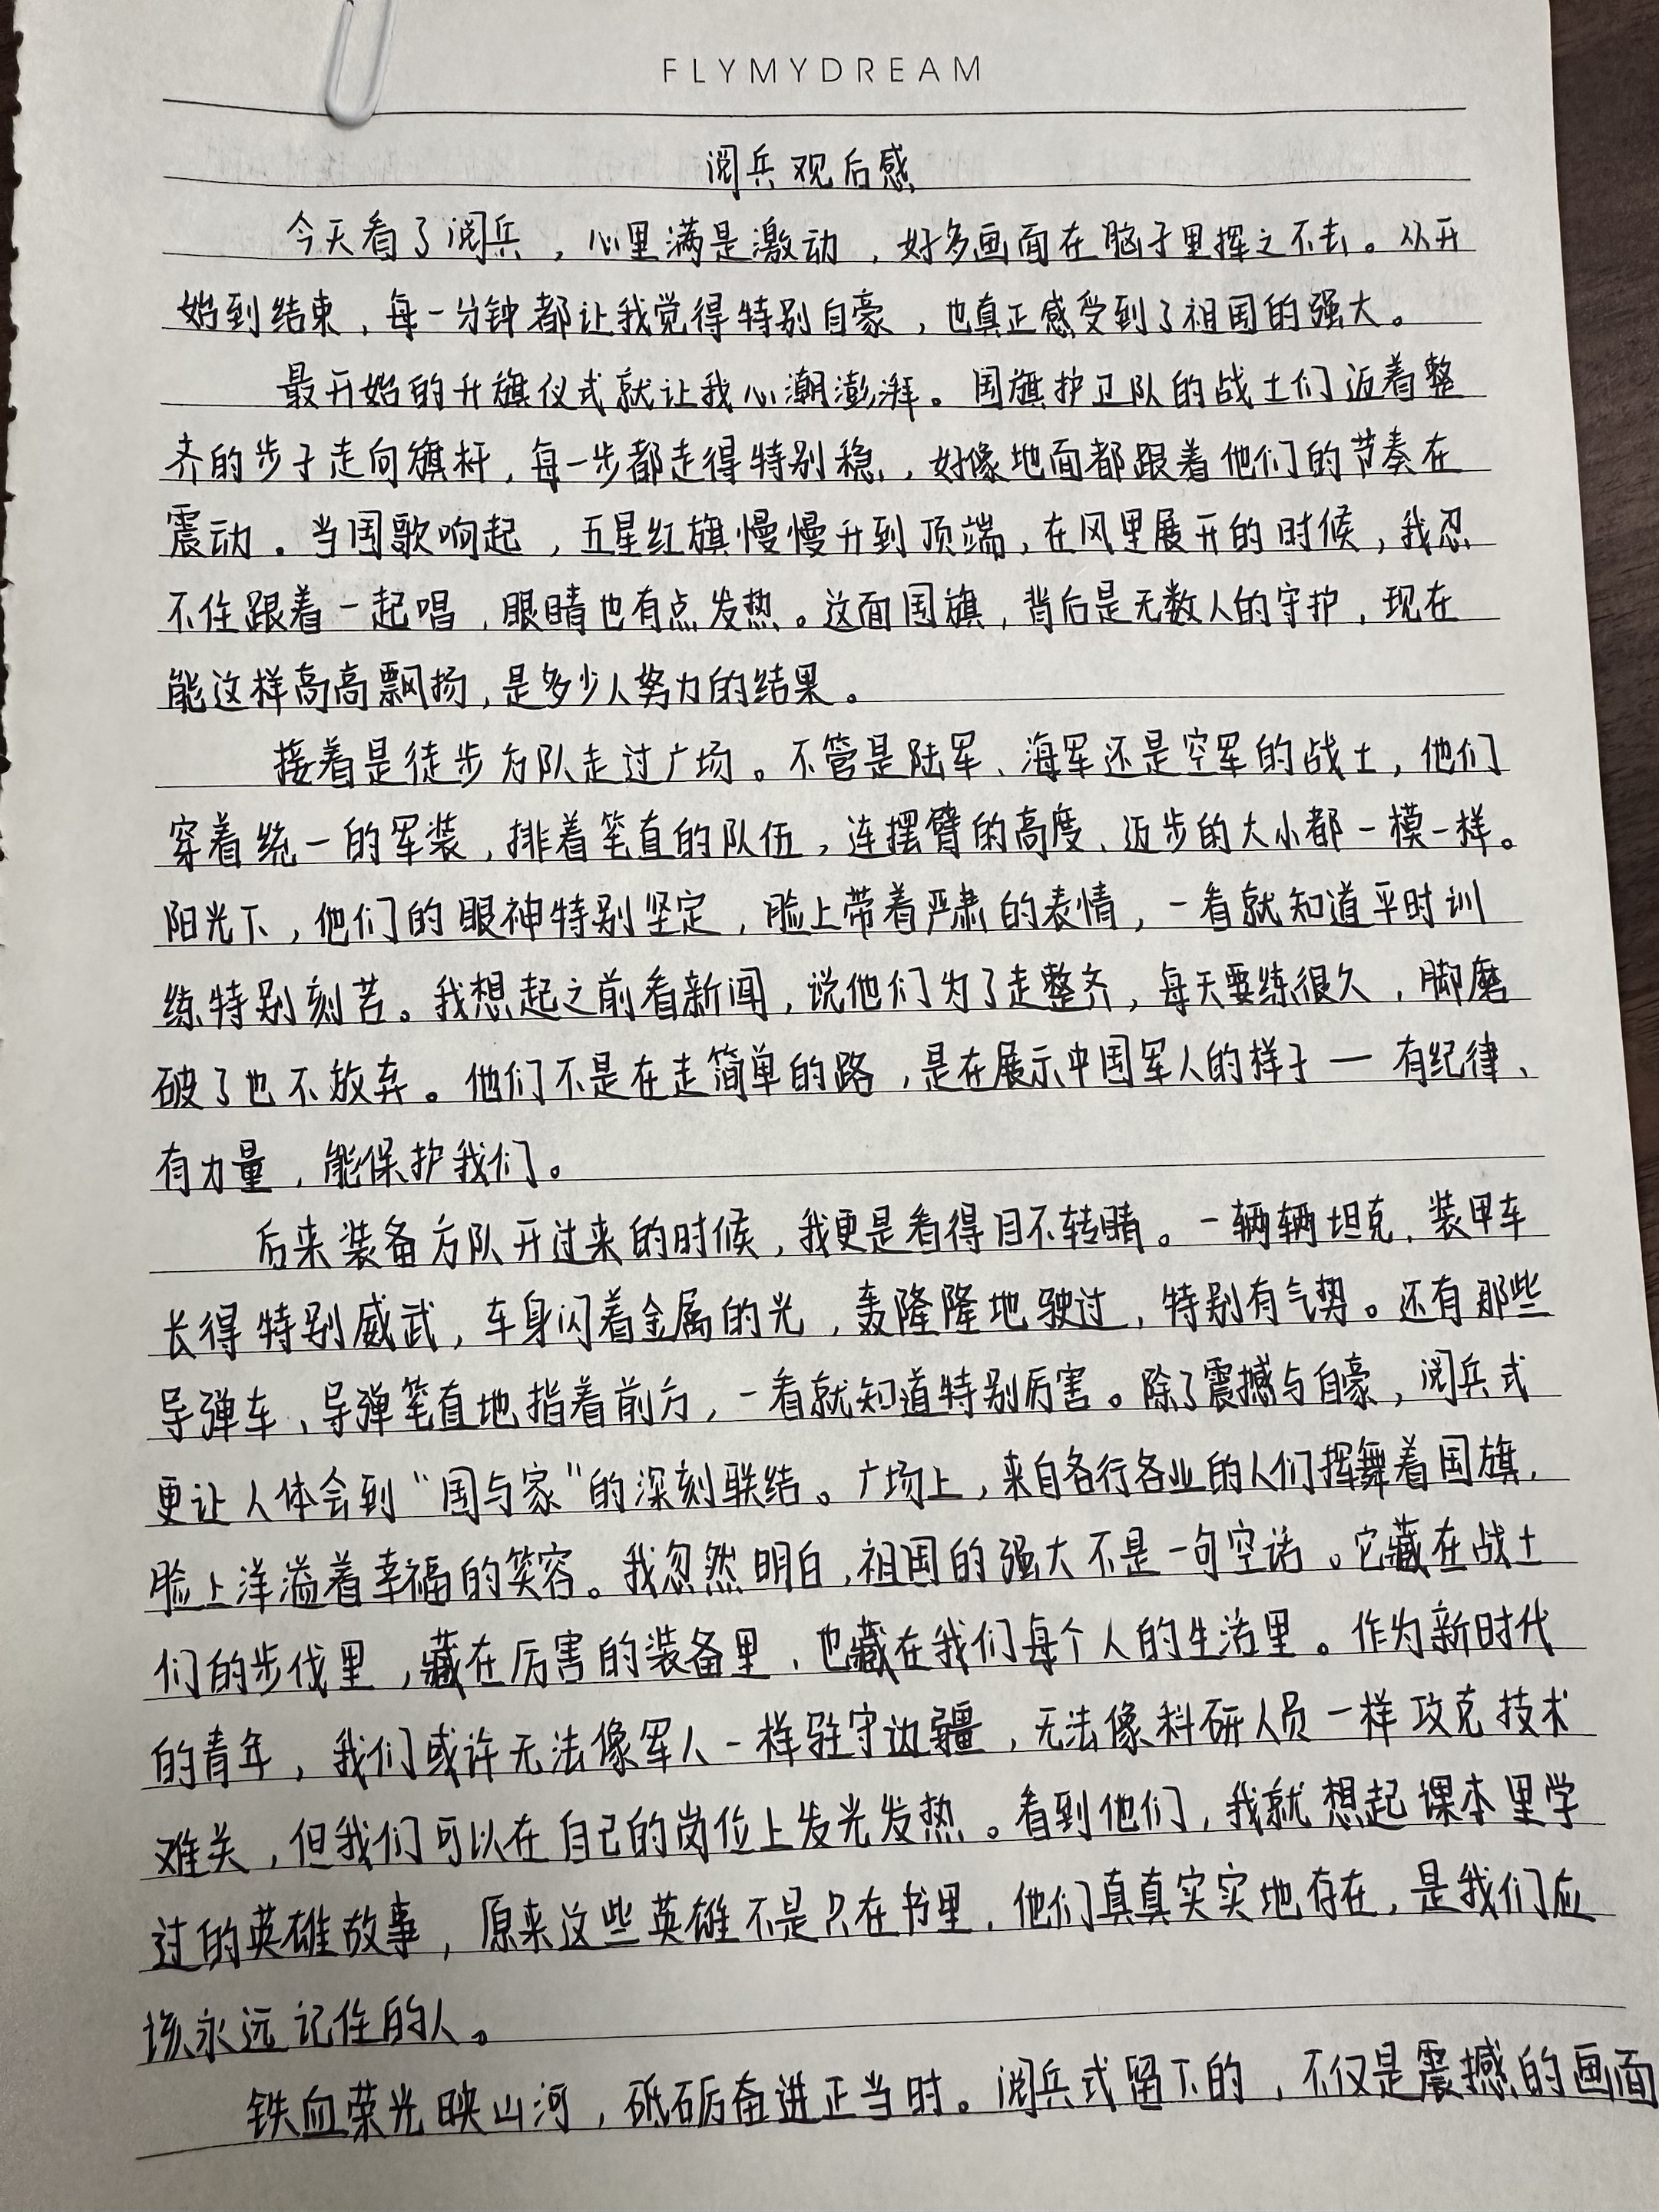 FLYMYDREAM
阅兵观后感
今天看了阅兵，心里满是激动，好多画面在脑子里挥之不去。从开
始到结束，每一分钟都让我觉得特别自豪，也真正感受到了祖国的强大。
最开始的升旗仪式就让我心潮澎湃。国旗护卫队的战士们迈着整
齐的步子走向旗杆，每一步都走得特别稳，好像地面都跟着他们的节奏在
震动。当国歌响起，五星红旗慢慢升到顶端，在风里展开的时候，我忍
不住跟着一起唱，眼睛也有点发热。这面国旗，背后是无数人的守护，现在
能这样高高飘扬，是多少人努力的结果。
接着是徒步方队走过广场。不管是陆军、海军还是空军的战士，他们
穿着统一的军装，排着笔直的队伍，连摆臂的高度、迈步的大小都一模一样。
阳光下，他们的眼神特别坚定，脸上带着严肃的表情，一看就知道平时训
练特别刻苦。我想起之前看新闻，说他们为了走整齐，每天要练很久，脚磨
破了也不放弃。他们不是在走简单的路，是在展示中国军人的样子一有纪律、
有力量，能保护我们。
后来装备方队开过来的时候，我更是看得目不转睛。一辆辆坦克、装甲车
长得特别威武，车身闪着金属的光，轰隆隆地驶过，特别有气势。还有那些
导弹车、导弹笔直地指着前方，一看就知道特别厉害。除了震撼与自豪，阅兵式
更让人体会到“国与家”的深刻联结。广场上，来自各行各业的人们挥舞着国旗，
脸上洋溢着幸福的笑容。我忽然明白，祖国的强大不是一句空话。它藏在战士
们的步伐里，藏在厉害的装备里，也藏在我们每个人的生活里。作为新时代
的青年，我们或许无法像军人一样驻守边疆，无法像科研人员一样攻克技术
难关，但我们可以在自己的岗位上发光发热。看到他们，我就想起课本里学
过的英雄故事，原来这些英雄不是只在书里，他们真真实实地存在，是我们应
该永远记住的人。
铁血荣光映山河，砥砺奋进正当时。阅兵式留下的，不仅是震撼的画面